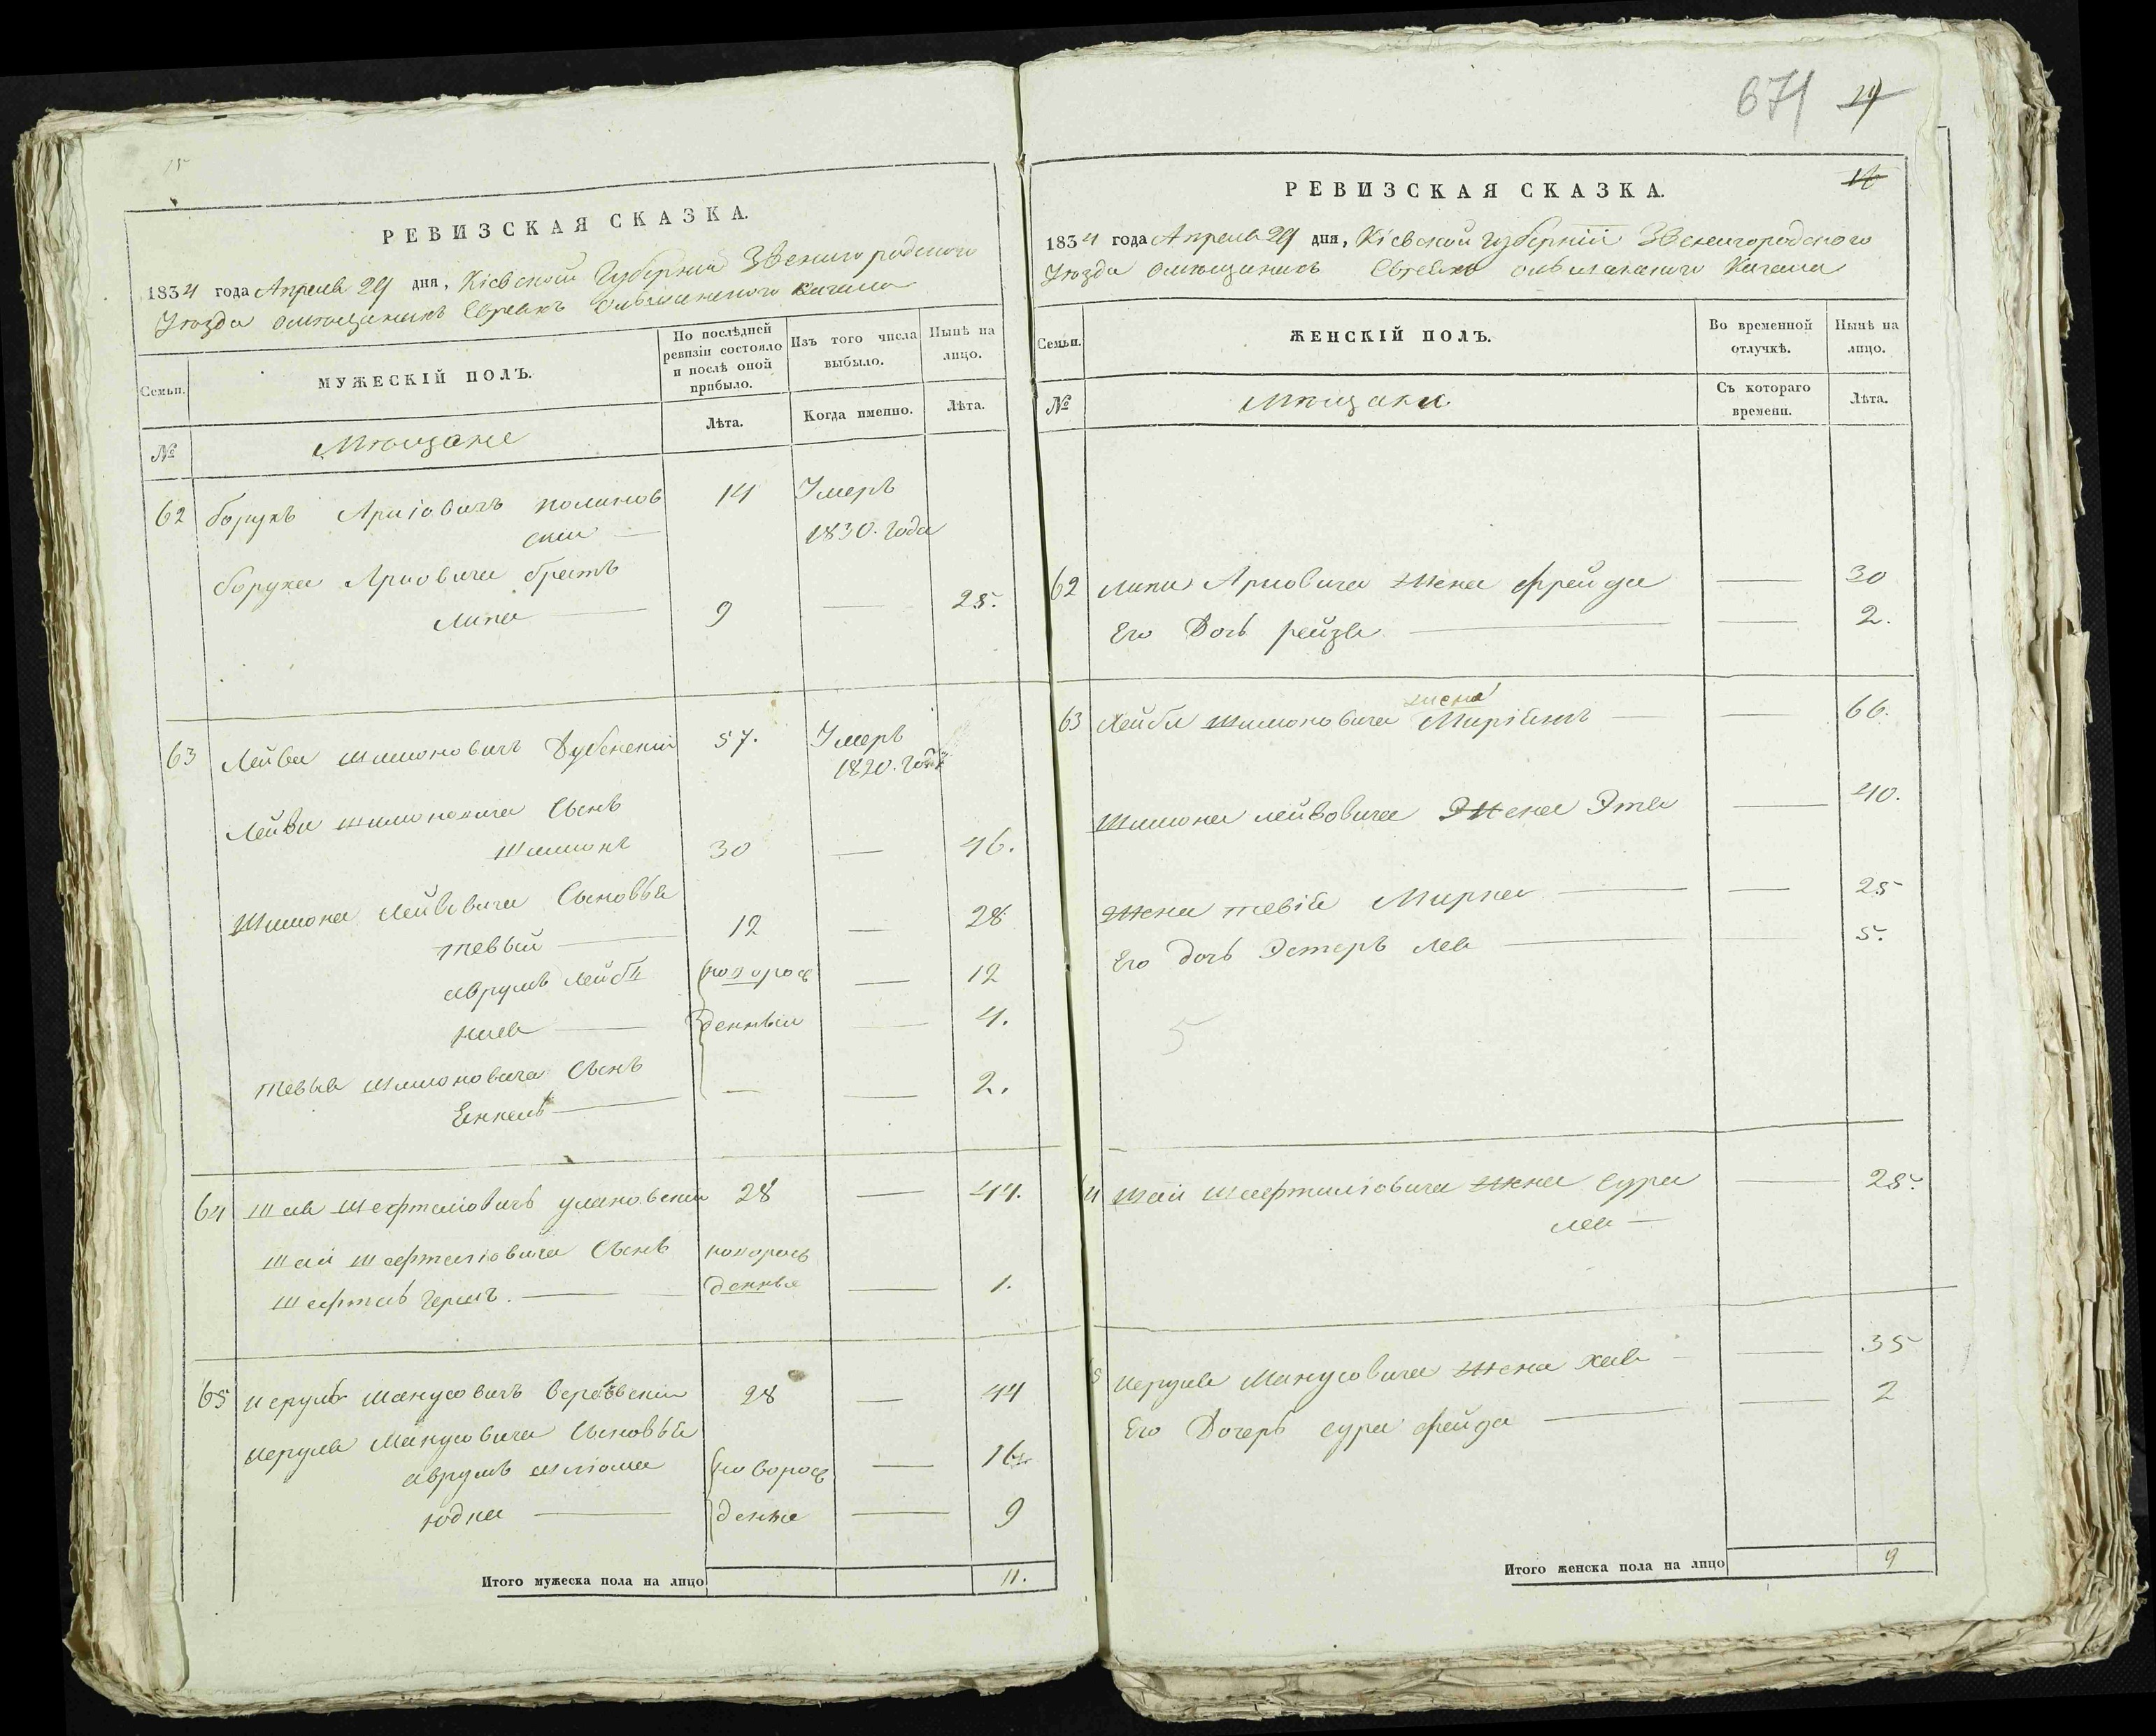 15
РЕВИЗСКАЯ СКАЗКА.
1834 года Апреля 29 дня, Кіевской Губерніи Звенигородского
Уезда Омещанихъ Евреяхъ Ольшанского Кагала
Семьи.
МУЖЕСКІЙ ПОЛЪ.
По послѣдней ревизіи состояло и послѣ оной прибыло.
Изъ того числа выбыло.
Нынѣ на лицо.
№
Мѣщане
Лѣта.
Когда именно.
Лѣта.
62 Борухъ Аріовичъ Полинов 14 Умеръ
скій — 1830. года
Боруха Ариовича братъ
Липа — 9 — 25.
63 Лейба Шимоновичъ Дубенскій 57. Умеръ
1820. года
Лейби Шимоновича Сынъ
Шимонъ 30 — 46.
Шимона Лейбовича Сыновья
тевый — 12 — 28
аврумъ Лейбъ новорож — 12
— денныи — 4.
тевыя Шимоновича Сынъ
Енкель — — — 2.
64 Шая Шефтеліовичъ улановскій 28 — 44.
Шаи Шефтеліовича Сынъ новорож
Шефтель герш. — денные — 1.
65 Иерухъ Манусовичъ 28 — 44
Манусовича Сыновья
аврумъ шліома новорож — 16
юдка — денные — 9
Итого мужеска пола на лицо 11.
671 19
14
РЕВИЗСКАЯ СКАЗКА.
1834 года Апреля 29 дня, Кіевской губерніи Звенигородского
Уезда Омещанихъ Евреяхъ ольшанского Кагала
Семьи.
ЖЕНСКІЙ ПОЛЪ.
Во временной отлучкѣ.
Нынѣ на лицо.
№
Мѣщанки
Съ котораго времени.
Лѣта.
62 Липи Ариовича Жена фрейда — 30
Его Дочь рейзя — — 2.
жена
63 Лейби Шимоновича Миріямъ — — 66.
Шимона лейбовича Жена Этя — 40.
Жена тевія Мирка — — 25
Его дочь Эстеръ Лея — — 5.
5
Шаи Шефтеліовича Жена Сура — 25.
лея —
Манусовича Жена хая — — 35
Его Дочерь сура фейга — — 2
Итого женска пола на лицо 9